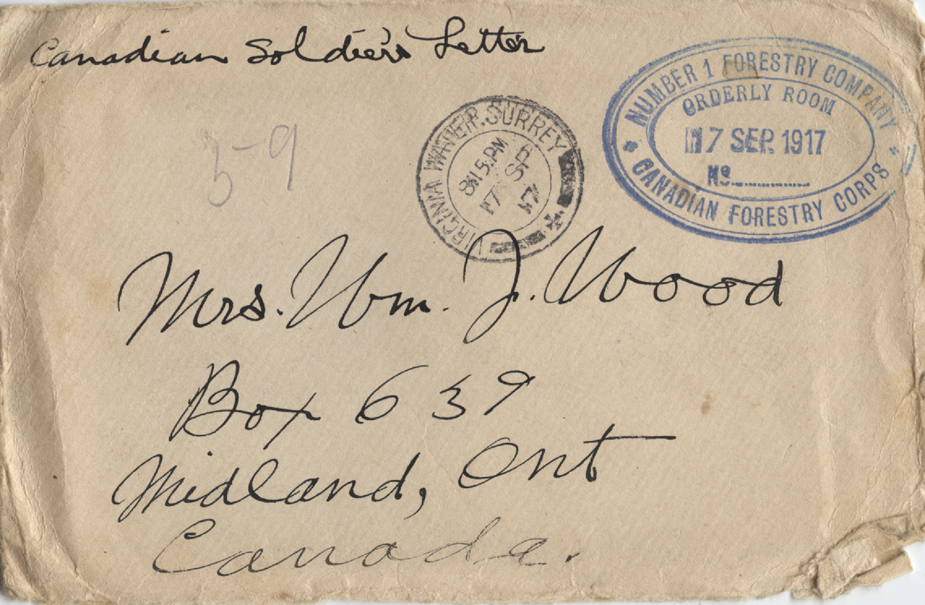 Canadian Soldier's Letter
59
VIRGINIA WATER. SURREY
8.15 PM
17 SP
17
NUMBER 1 FORESTRY COMPANY
ORDERLY ROOM
17 SEP. 1917
No.
CANADIAN FORESTRY CORPS
Mrs. Wm. J. Wood
Box 639
Midland, Ont
Canada.